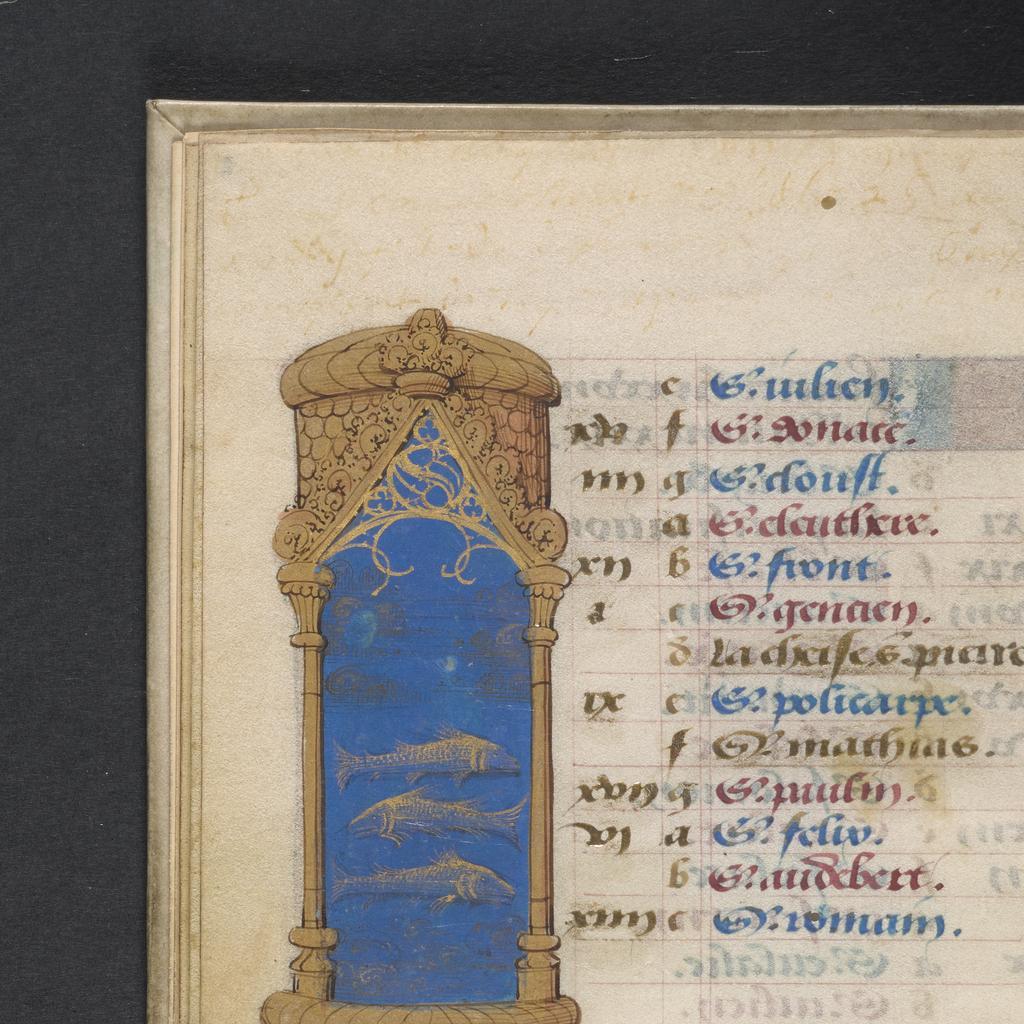 e S. iulien.
xv f S. donace.
iiii g S. cloust.
a S. eleuthere.
xii b S. front.
a c S. gencien.
d La cheise s. pierre
ix e S. policarpe.
f S. mathias.
xvii g S. paulin.
vi a S. felix.
b S. audebert.
xiiii c S. romain.